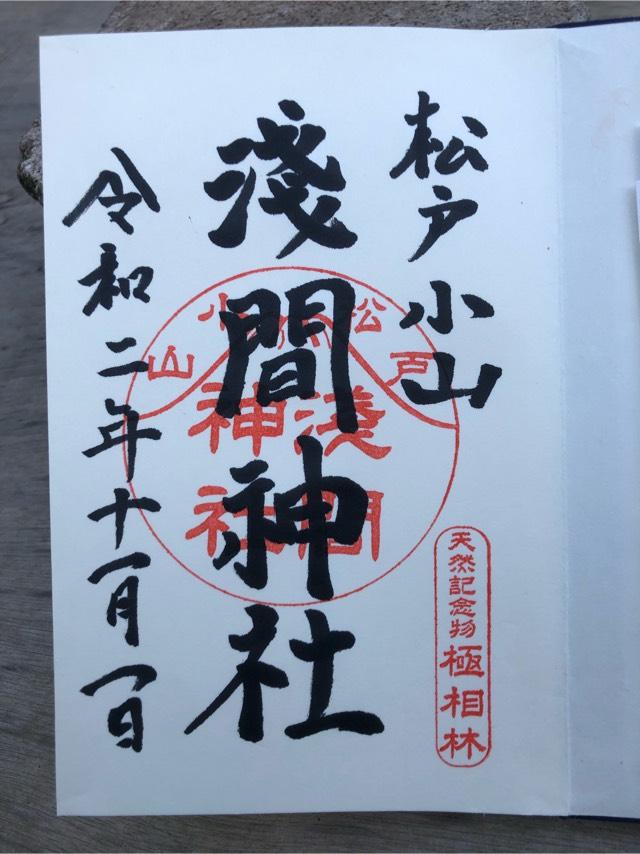 松戸小山
淺間神社
令和二年十一月一日
松戸
小山
淺間
神社
天然記念物 極相林